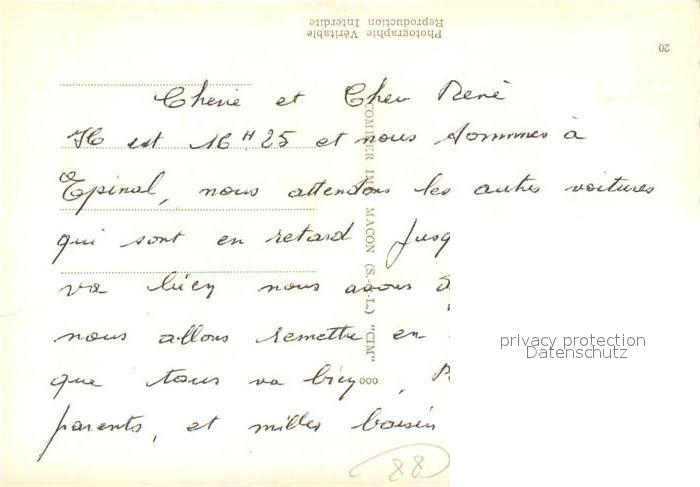 Chérie et Cher René
Il est 16H25 et nous sommes à
Epinal, nous attendons les autres voitures
qui sont en retard Jusq
va bien nous avons
nous allons remettre en
que tous va bien,
parents, et milles baisers
88
Photographie Véritable
Reproduction Interdite
20
COMBIER IMP. MACON (S.-&-L.) "CIM"
privacy protection
Datenschutz